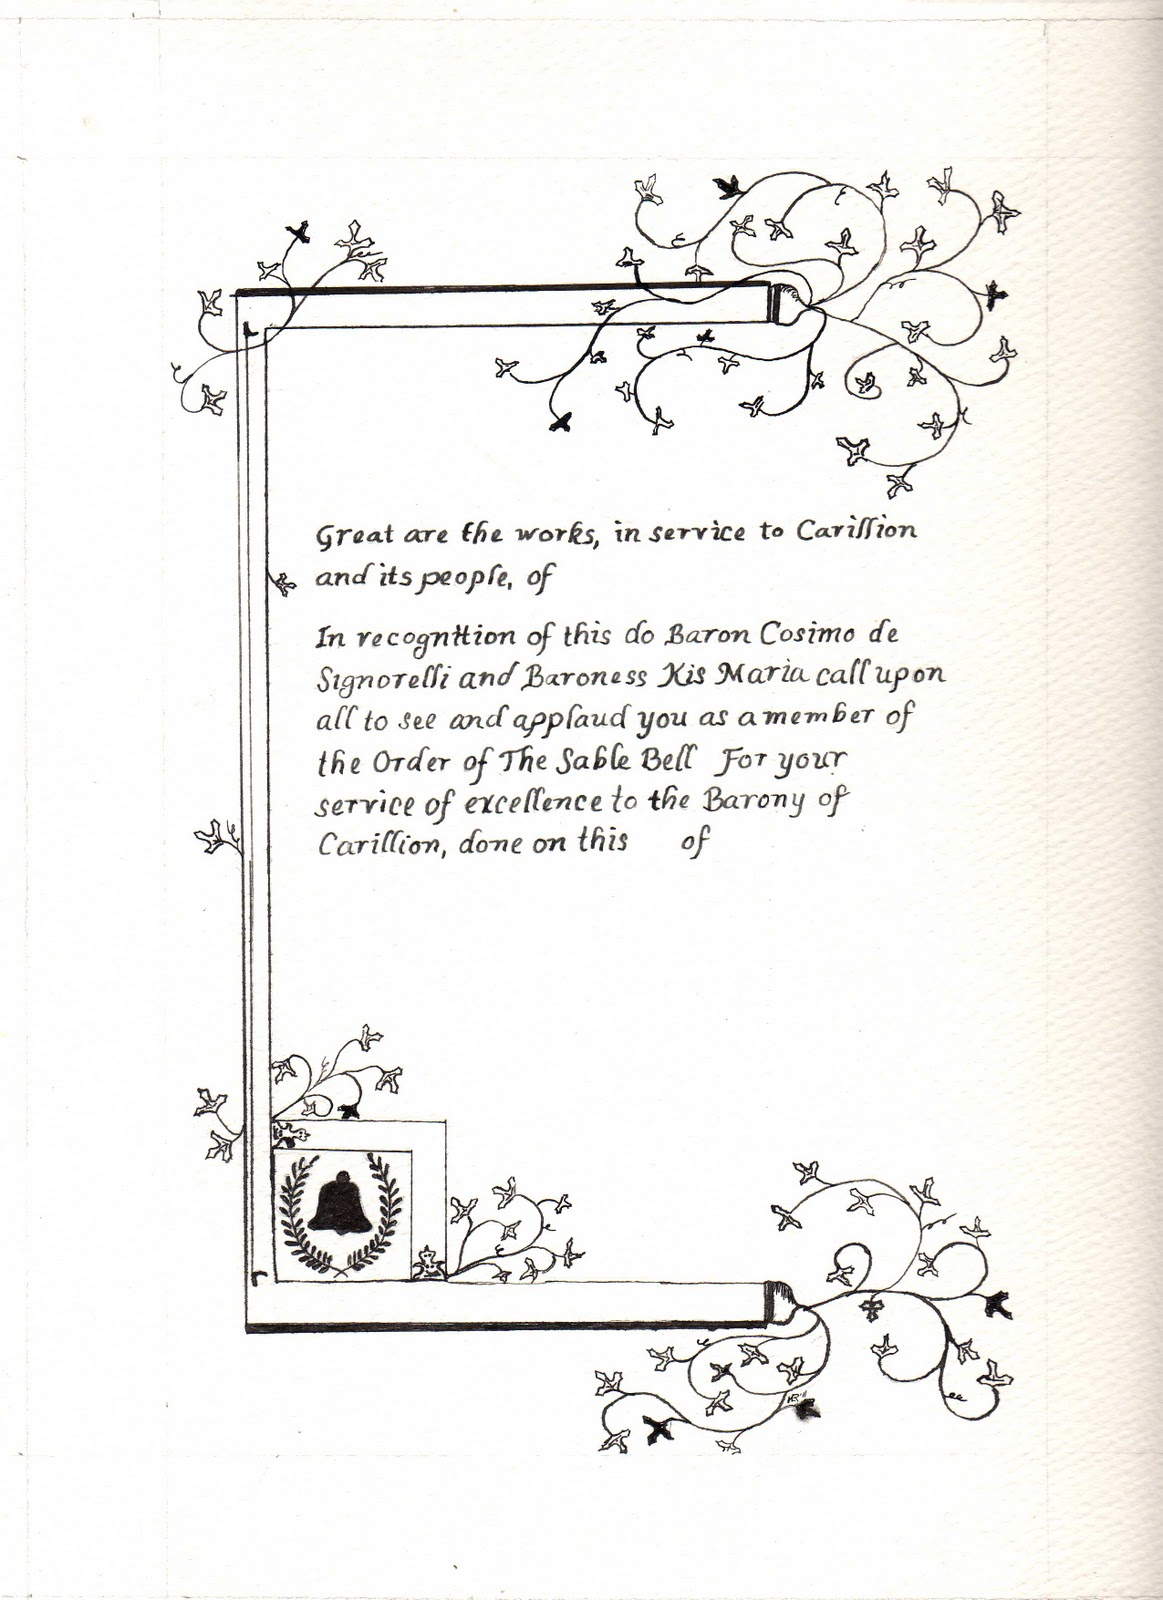 Great are the works, in service to Carillion
and its people, of
In recognition of this do Baron Cosimo de
Signorelli and Baroness Kis Maria call upon
all to see and applaud you as a member of
the Order of The Sable Bell For your
service of excellence to the Barony of
Carillion, done on this of